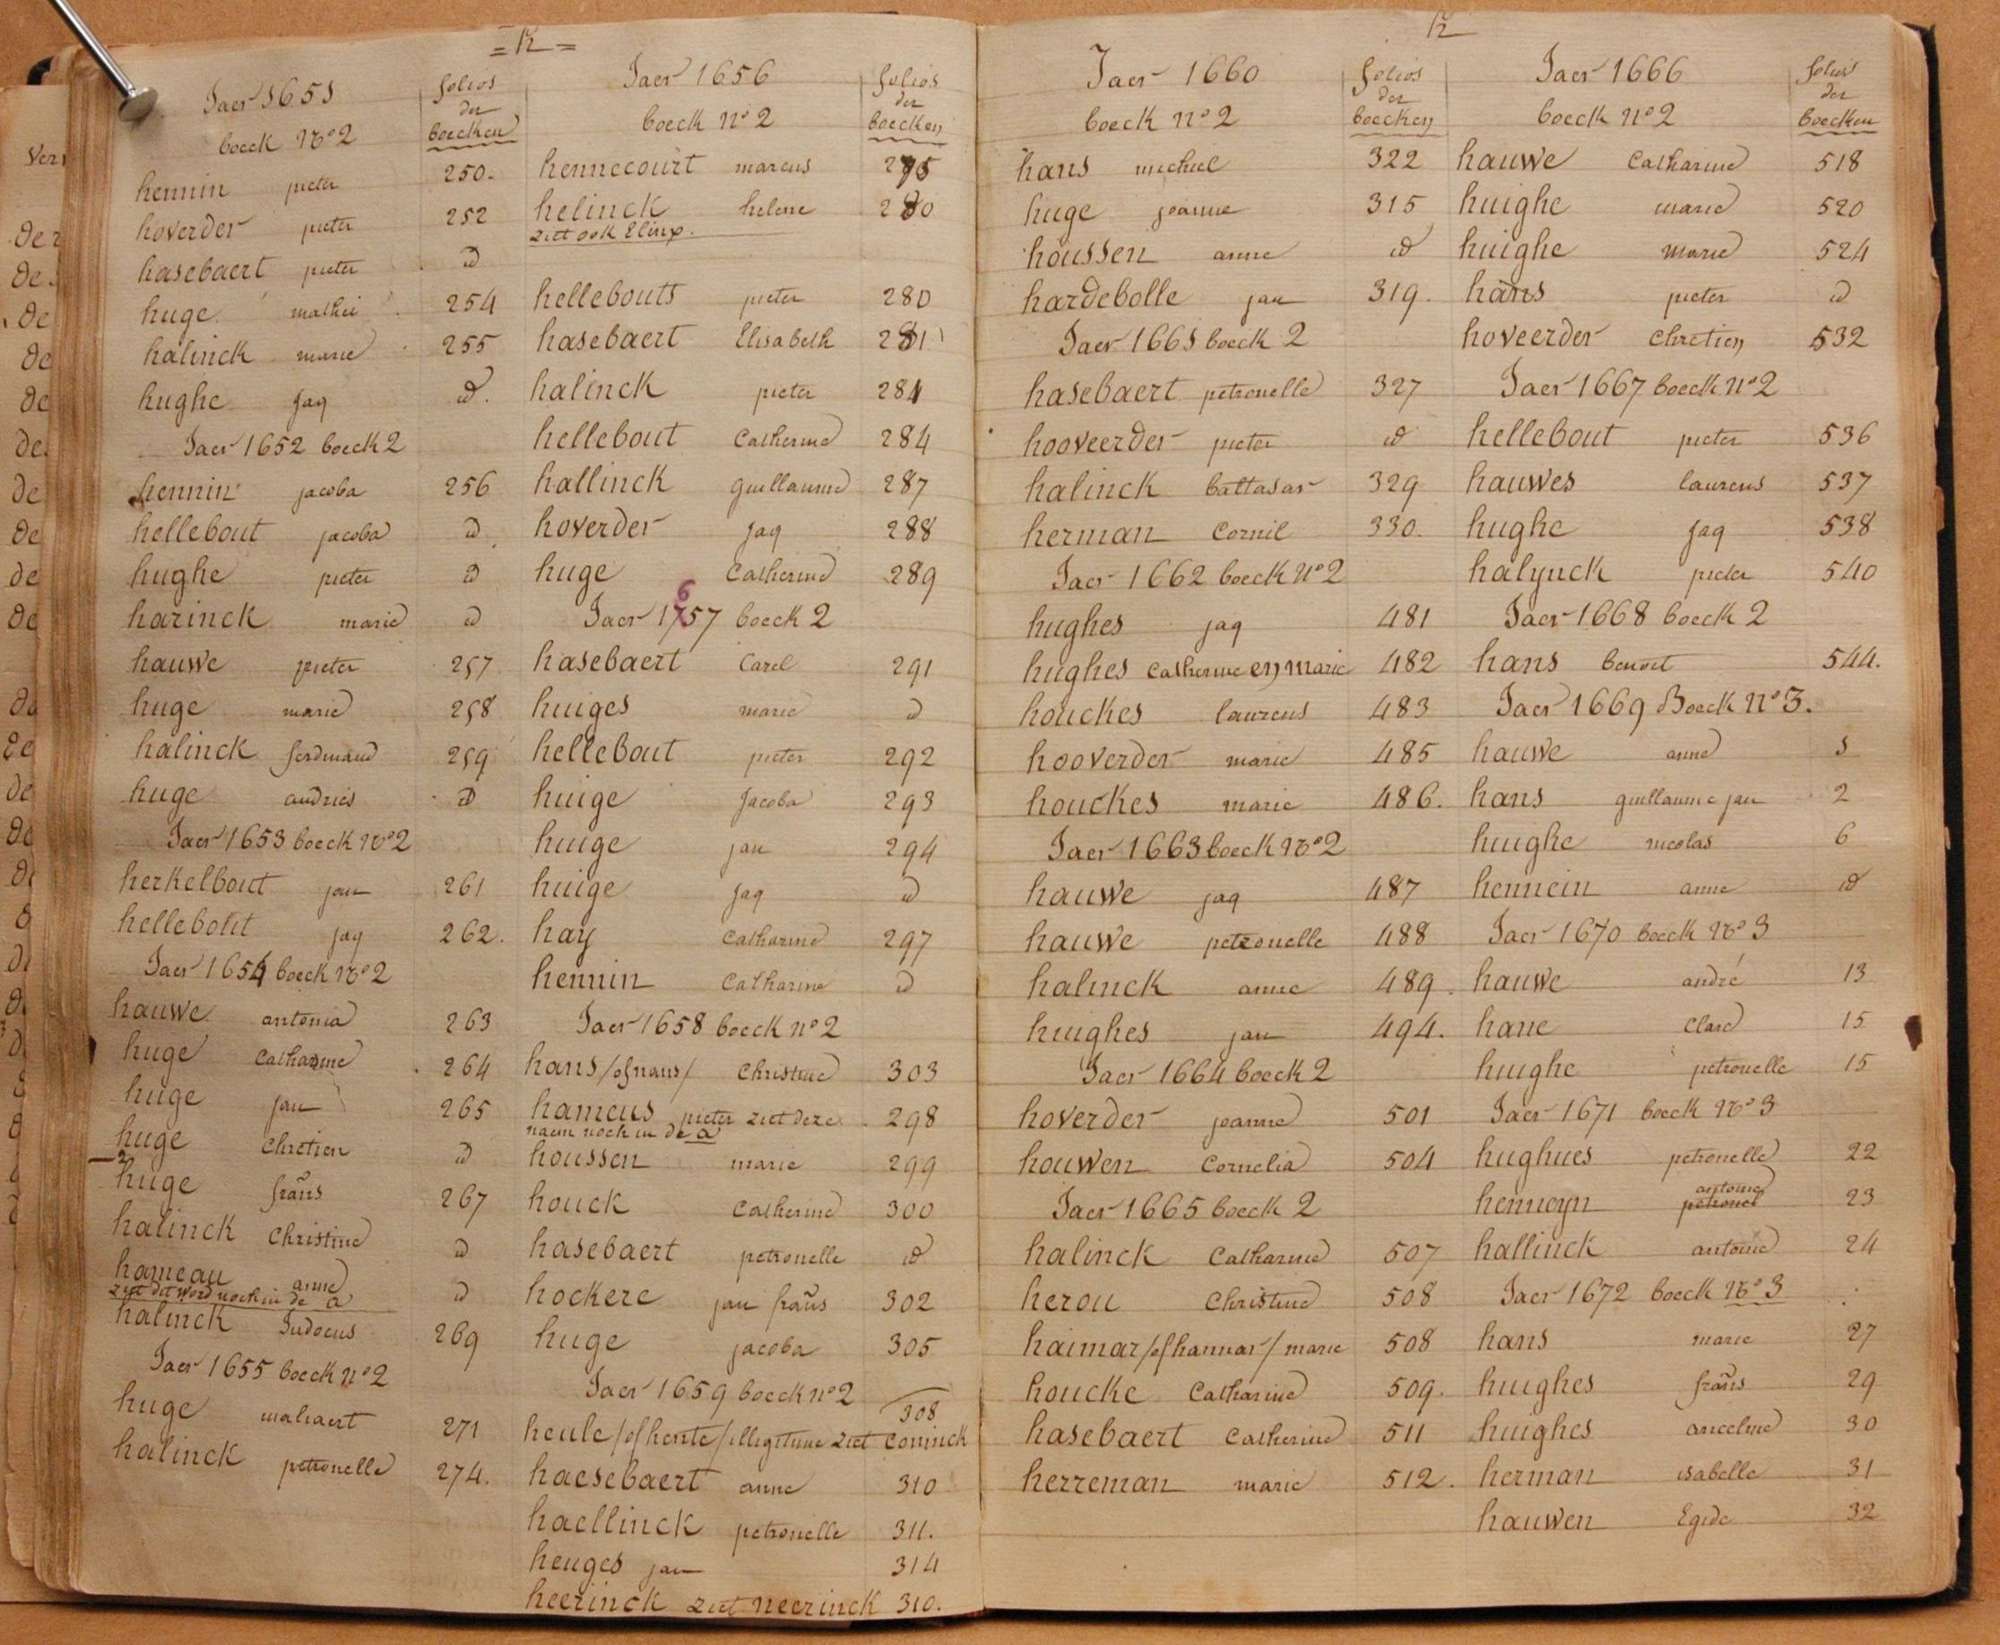 = h =
Jaer 1651
folios der boecken
boeck No 2
hennin pieter 250.
hoverder pieter 252
hasebaert pieter id
huge mathii 254
halinck marie 255
hughe Jaq id.
Jaer 1652 boeck 2
hennin jacoba 256
hellebout jacoba id
hughe pieter id
harinck marie id
hauwe pieter 257
huge marie 258
halinck ferdinand 259
huge andries id
Jaer 1653 boeck No 2
herkelbout jan 261
hellebout jaq 262.
Jaer 1654 boeck No 2
hauwe antonia 263
huge Catharine 264
huge jan 265
huge Chretien id
huge frans 267
halinck Christine id
hameau anne id
ziet dit word noch in de a
halinck Judocus 269
Jaer 1655 boeck no 2
huge mahaert 271
halinck petronelle 274.
Jaer 1656
folios der boecken
boeck No 2
hennecourt marcus 275
helinck helene 280
ziet ook Elinx.
hellebouts pieter 280
hasebaert Elisabeth 281
halinck pieter 281
hellebout Catherine 284
hallinck guillaume 287
hoverder Jaq 288
huge Catherine 289
Jaer 1657 boeck 2
hasebaert Carel 291
huiges marie id
hellebout pieter 292
huige Jacoba 293
huige jan 294
huige Jaq id
hay Catharine 297
hennin Catharine id
Jaer 1658 boeck no 2
hans /of naus/ Christine 303
hameus pieter ziet deze 298
naem noch in de a
houssen marie 299
houck Catherine 300
hasebaert petronelle id
hockere jan frans 302
huge jacoba 305
Jaer 1659 boeck no 2
308
heule /of hente/ illegitime ziet Coninck
haesebaert anne 310
haellinck petronelle 311.
heuges jan 314
heerinck ziet neerinck 310.
h
Jaer 1660
folios der boecken
boeck no 2
hans michiel 322
huge joanne 315
houssen anne id
hardebolle jan 319.
Jaer 1661 boeck 2
hasebaert petronelle 327
hooveerder pieter id
halinck baltasar 329
herman Cornil 330.
Jaer 1662 boeck no 2
hughes jaq 481
hughes Catherine en marie 482
houckes laureus 483
hooverder marie 485
houckes marie 486.
Jaer 1663 boeck No 2
hauwe jaq 487
hauwe petronelle 488
halinck anne 489.
huighes jan 494.
Jaer 1664 boeck 2
hoverder joanne 501
houwen Cornelia 504
Jaer 1665 boeck 2
halinck Catharine 507
herou Christine 508
haimar /of hannar/ marie 508
houcke Catharine 509.
hasebaert Catherine 511
herreman marie 512.
Jaer 1666
folios der boecken
boeck No 2
hauwe Catharine 518
huighe marie 520
huighe marie 524
hans pieter id
hoveerder Chretien 532
Jaer 1667 boeck no 2
hellebout pieter 536
hauwes laureus 537
hughe Jaq 538
halynck pieter 540
Jaer 1668 boeck 2
hans benoit 544.
Jaer 1669 Boeck No 3.
hauwe anne 1
hans guillaume jan 2
huighe nicolas 6
hennein anne id
Jaer 1670 boeck No 3
hauwe andré 13
hane Clare 15
huighe petronelle 15
Jaer 1671 boeck No 3
hughues petronelle 22
antoine
hennoyn 23
hallinck antoine 24
Jaer 1672 boeck No 3
hans marie 27
huighes frans 29
huighes ancelme 30
herman isabelle 31
hauwen Egide 32